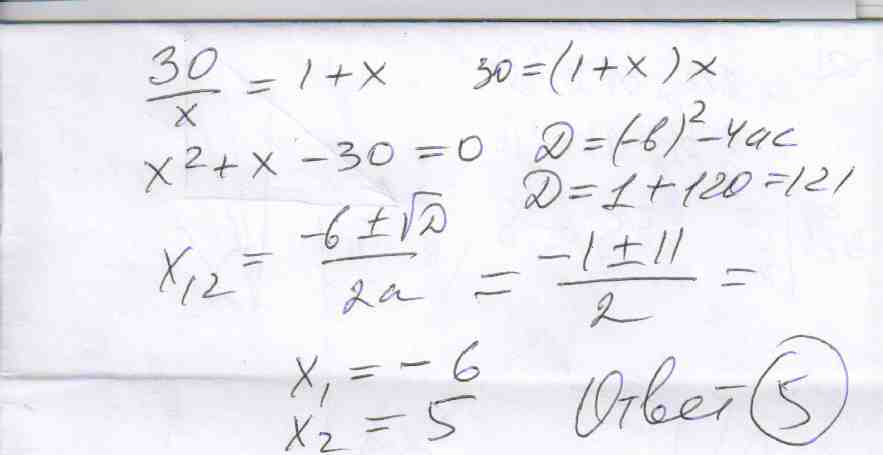 30/x = 1 + x 30 = (1 + x) x
x² + x - 30 = 0 D = (-b)² - 4ac
D = 1 + 120 = 121
x₁,₂ = (-b ± √D)/2a = (-1 ± 11)/2 =
x₁ = - 6
x₂ = 5 Ответ 5